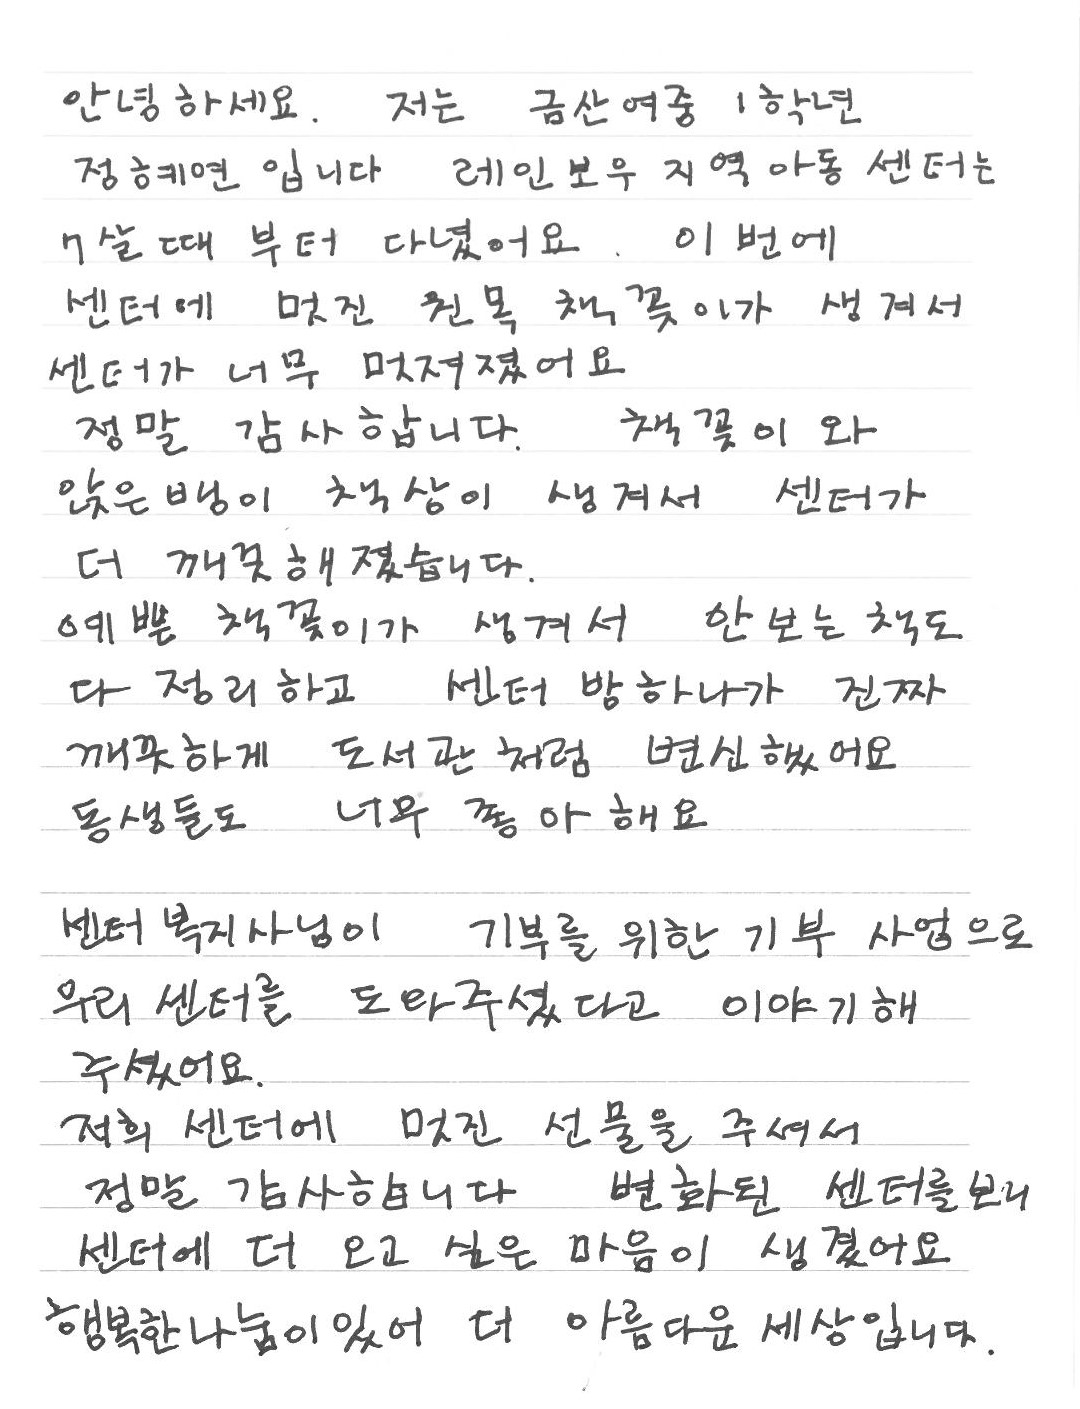 안녕하세요. 저는 금산여중 1학년
정혜연 입니다 레인보우 지역아동센터는
7살때 부터 다녔어요. 이번에
센터에 멋진 원목 책꽂이가 생겨서
센터가 너무 멋져졌어요
정말 감사합니다. 책꽂이와
앉은뱅이 책상이 생겨서 센터가
더 깨끗해졌습니다.
예쁜 책꽂이가 생겨서 안보는 책도
다 정리하고 센터 방하나가 진짜
깨끗하게 도서관처럼 변신했어요
동생들도 너무 좋아해요
센터복지사님이 기부를 위한 기부 사업으로
우리 센터를 도와주셨다고 이야기해
주셨어요.
저희 센터에 멋진 선물을 주셔서
정말 감사합니다 변화된 센터를 보니
센터에 더 오고 싶은 마음이 생겼어요
행복한나눔이있어 더 아름다운 세상입니다.